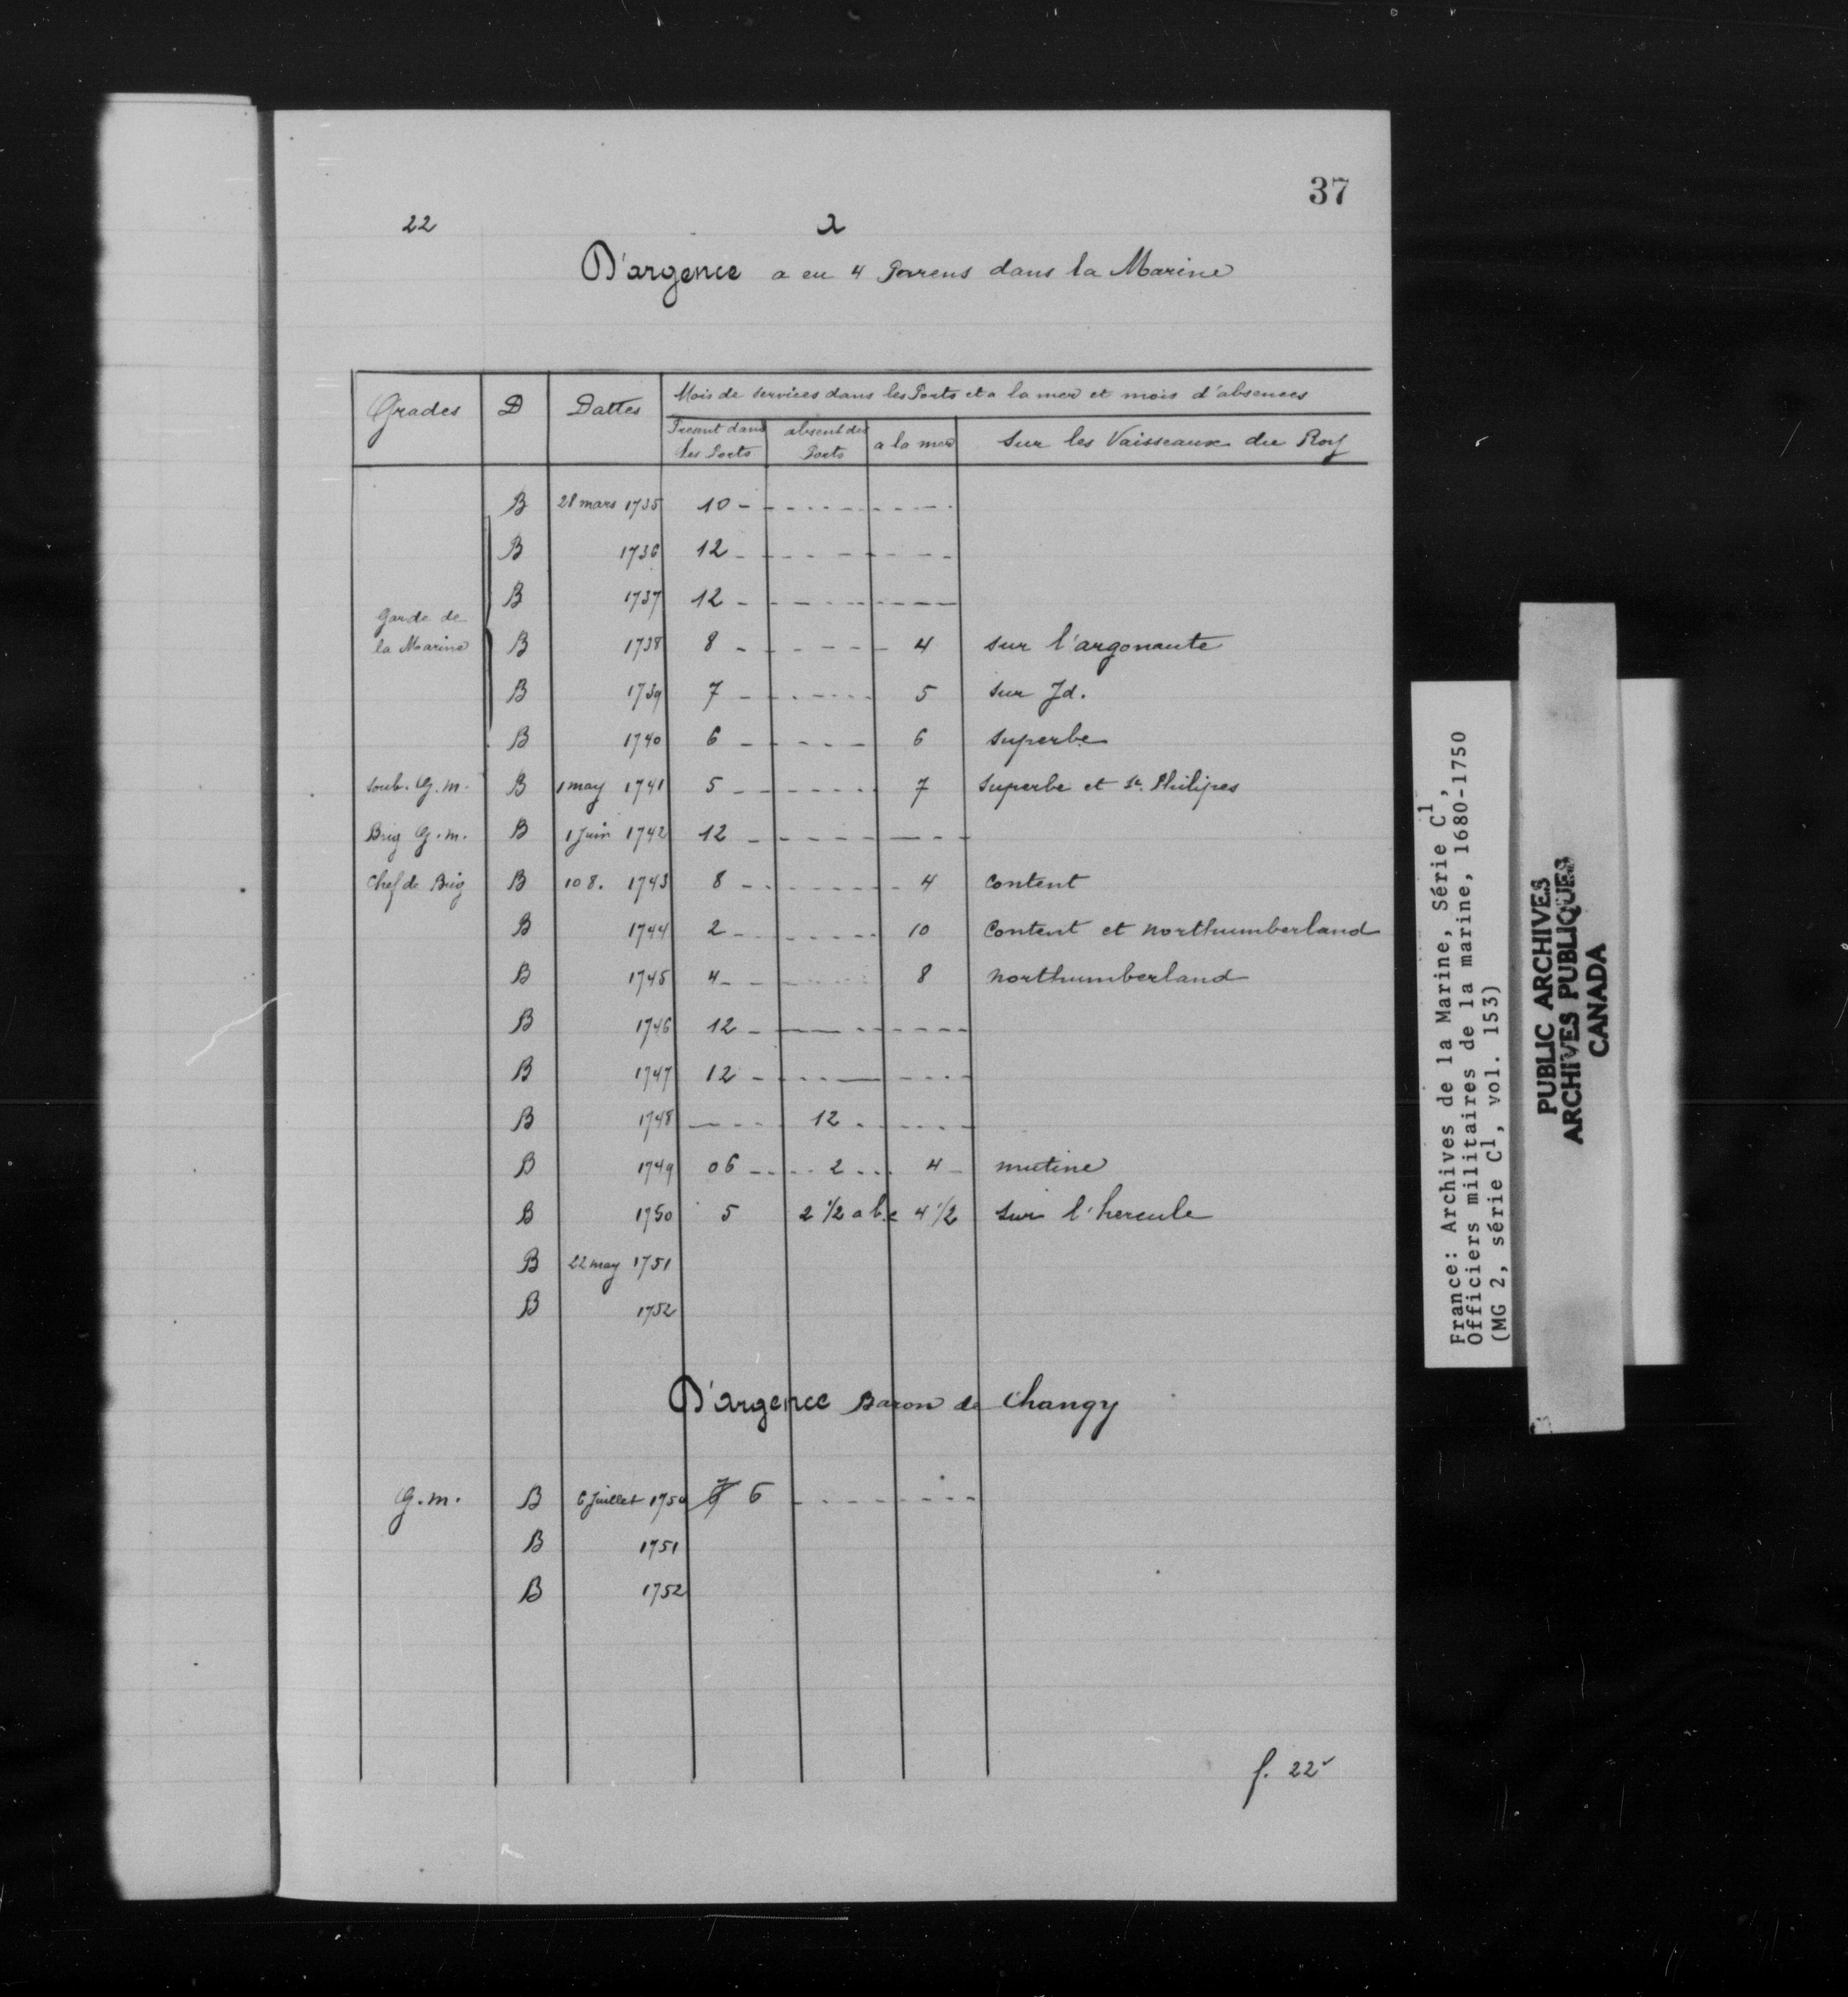 37
22
2
D'argence a eu 4 Parens dans la Marine
Grades D Dattes Mois de services dans les Ports et a la mer et mois d'absences
Present dans les Ports absent des Ports a la mer sur les Vaisseaux du Roy
B 28 mars 1735 10 - - - - - - -
B 1736 12 - - - - - - -
B 1737 12 - - - - - - -
Garde de
la Marine B 1738 8 - - - - - 4 sur l'argonaute
B 1739 7 - - - - - 5 sur Jd.
B 1740 6 - - - - - 6 superbe
Soub. G. m. B 1 may 1741 5 - - - - - 7 Superbe et St. Philipes
Brig G. m. B 1 Juin 1742 12 - - - - - - -
Chef de Brig B 10 8. 1743 8 - - - - - 4 Content
B 1744 2 - - - - - 10 Content et northumberland
B 1745 4 - - - - - 8 northumberland
B 1746 12 - - - - - - -
B 1747 12 - - - - - - -
B 1748 - - - - 12 - - - -
B 1749 06 - - - 2 - - - 4 - mutine
B 1750 5 2 1/2 ab.e 4 1/2 sur l'hercule
B 22 may 1751
B 1752
D'argence Baron de Changy
G. m. B 6 Juillet 1750 6 - - - - - -
B 1751
B 1752
f. 22v
France: Archives de la Marine, Série C1,
Officiers militaires de la marine, 1680-1750
(MG 2, série C1, vol. 153)
PUBLIC ARCHIVES
ARCHIVES PUBLIQUES
CANADA